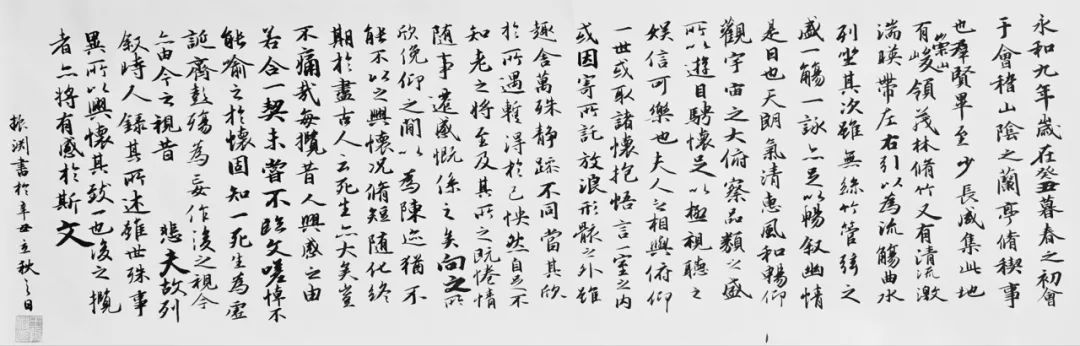 永和九年歲在癸丑暮春之初會
于會稽山陰之蘭亭脩稧事
也羣賢畢至少長咸集此地
有崇山峻領茂林脩竹又有清流激
湍暎帶左右引以為流觴曲水
列坐其次雖無絲竹管弦之
盛一觴一詠亦足以暢叙幽情
是日也天朗氣清惠風和暢仰
觀宇宙之大俯察品類之盛
所以遊目騁懷足以極視聽之
娛信可樂也夫人之相與俯仰
一世或取諸懷抱悟言一室之內
或因寄所託放浪形骸之外雖
趣舍萬殊静躁不同當其欣
於所遇暫得於己怏然自足不
知老之將至及其所之既惓情
隨事遷感慨係之矣向之所
欣俛仰之閒以為陳迹猶不
能不以之興懷況脩短隨化終
期於盡古人云死生亦大矣豈
不痛哉每攬昔人興感之由
若合一契未嘗不臨文嗟悼不
能喻之於懷固知一死生為虛
誕齊彭殤為妄作後之視今
亦由今之視昔 悲夫故列
叙時人錄其所述雖世殊事
異所以興懷其致一也後之攬
者亦將有感於斯文
振渊書於辛丑立秋之日